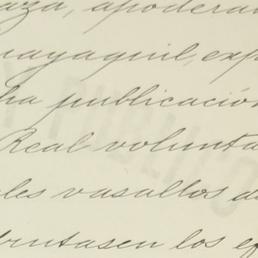 aza, apodera
uayaquil, exp
ha publicación
Real volunta
les vasallos d
frutasen los ef